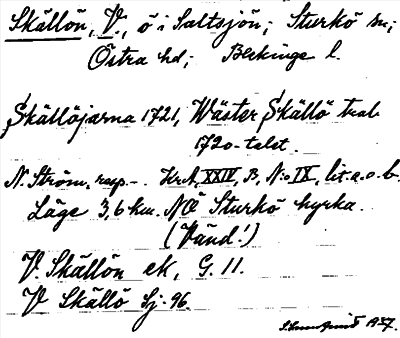 Skällön, V., ö i Saltsjön; Sturkö sn;
Östra hd; Blekinge l.
Skällöjarna 1721, Wäster Skällö trol.
1720-talet.
N. Ström, resp. - Kr. A, XXIV, B, N:o IX, lit. a. o. b.
Läge 3,6 km. NÖ Sturkö kyrka.
(Vänd!)
V. Skällön ek, G. 11.
V Skällö Sj. 96.
1937.